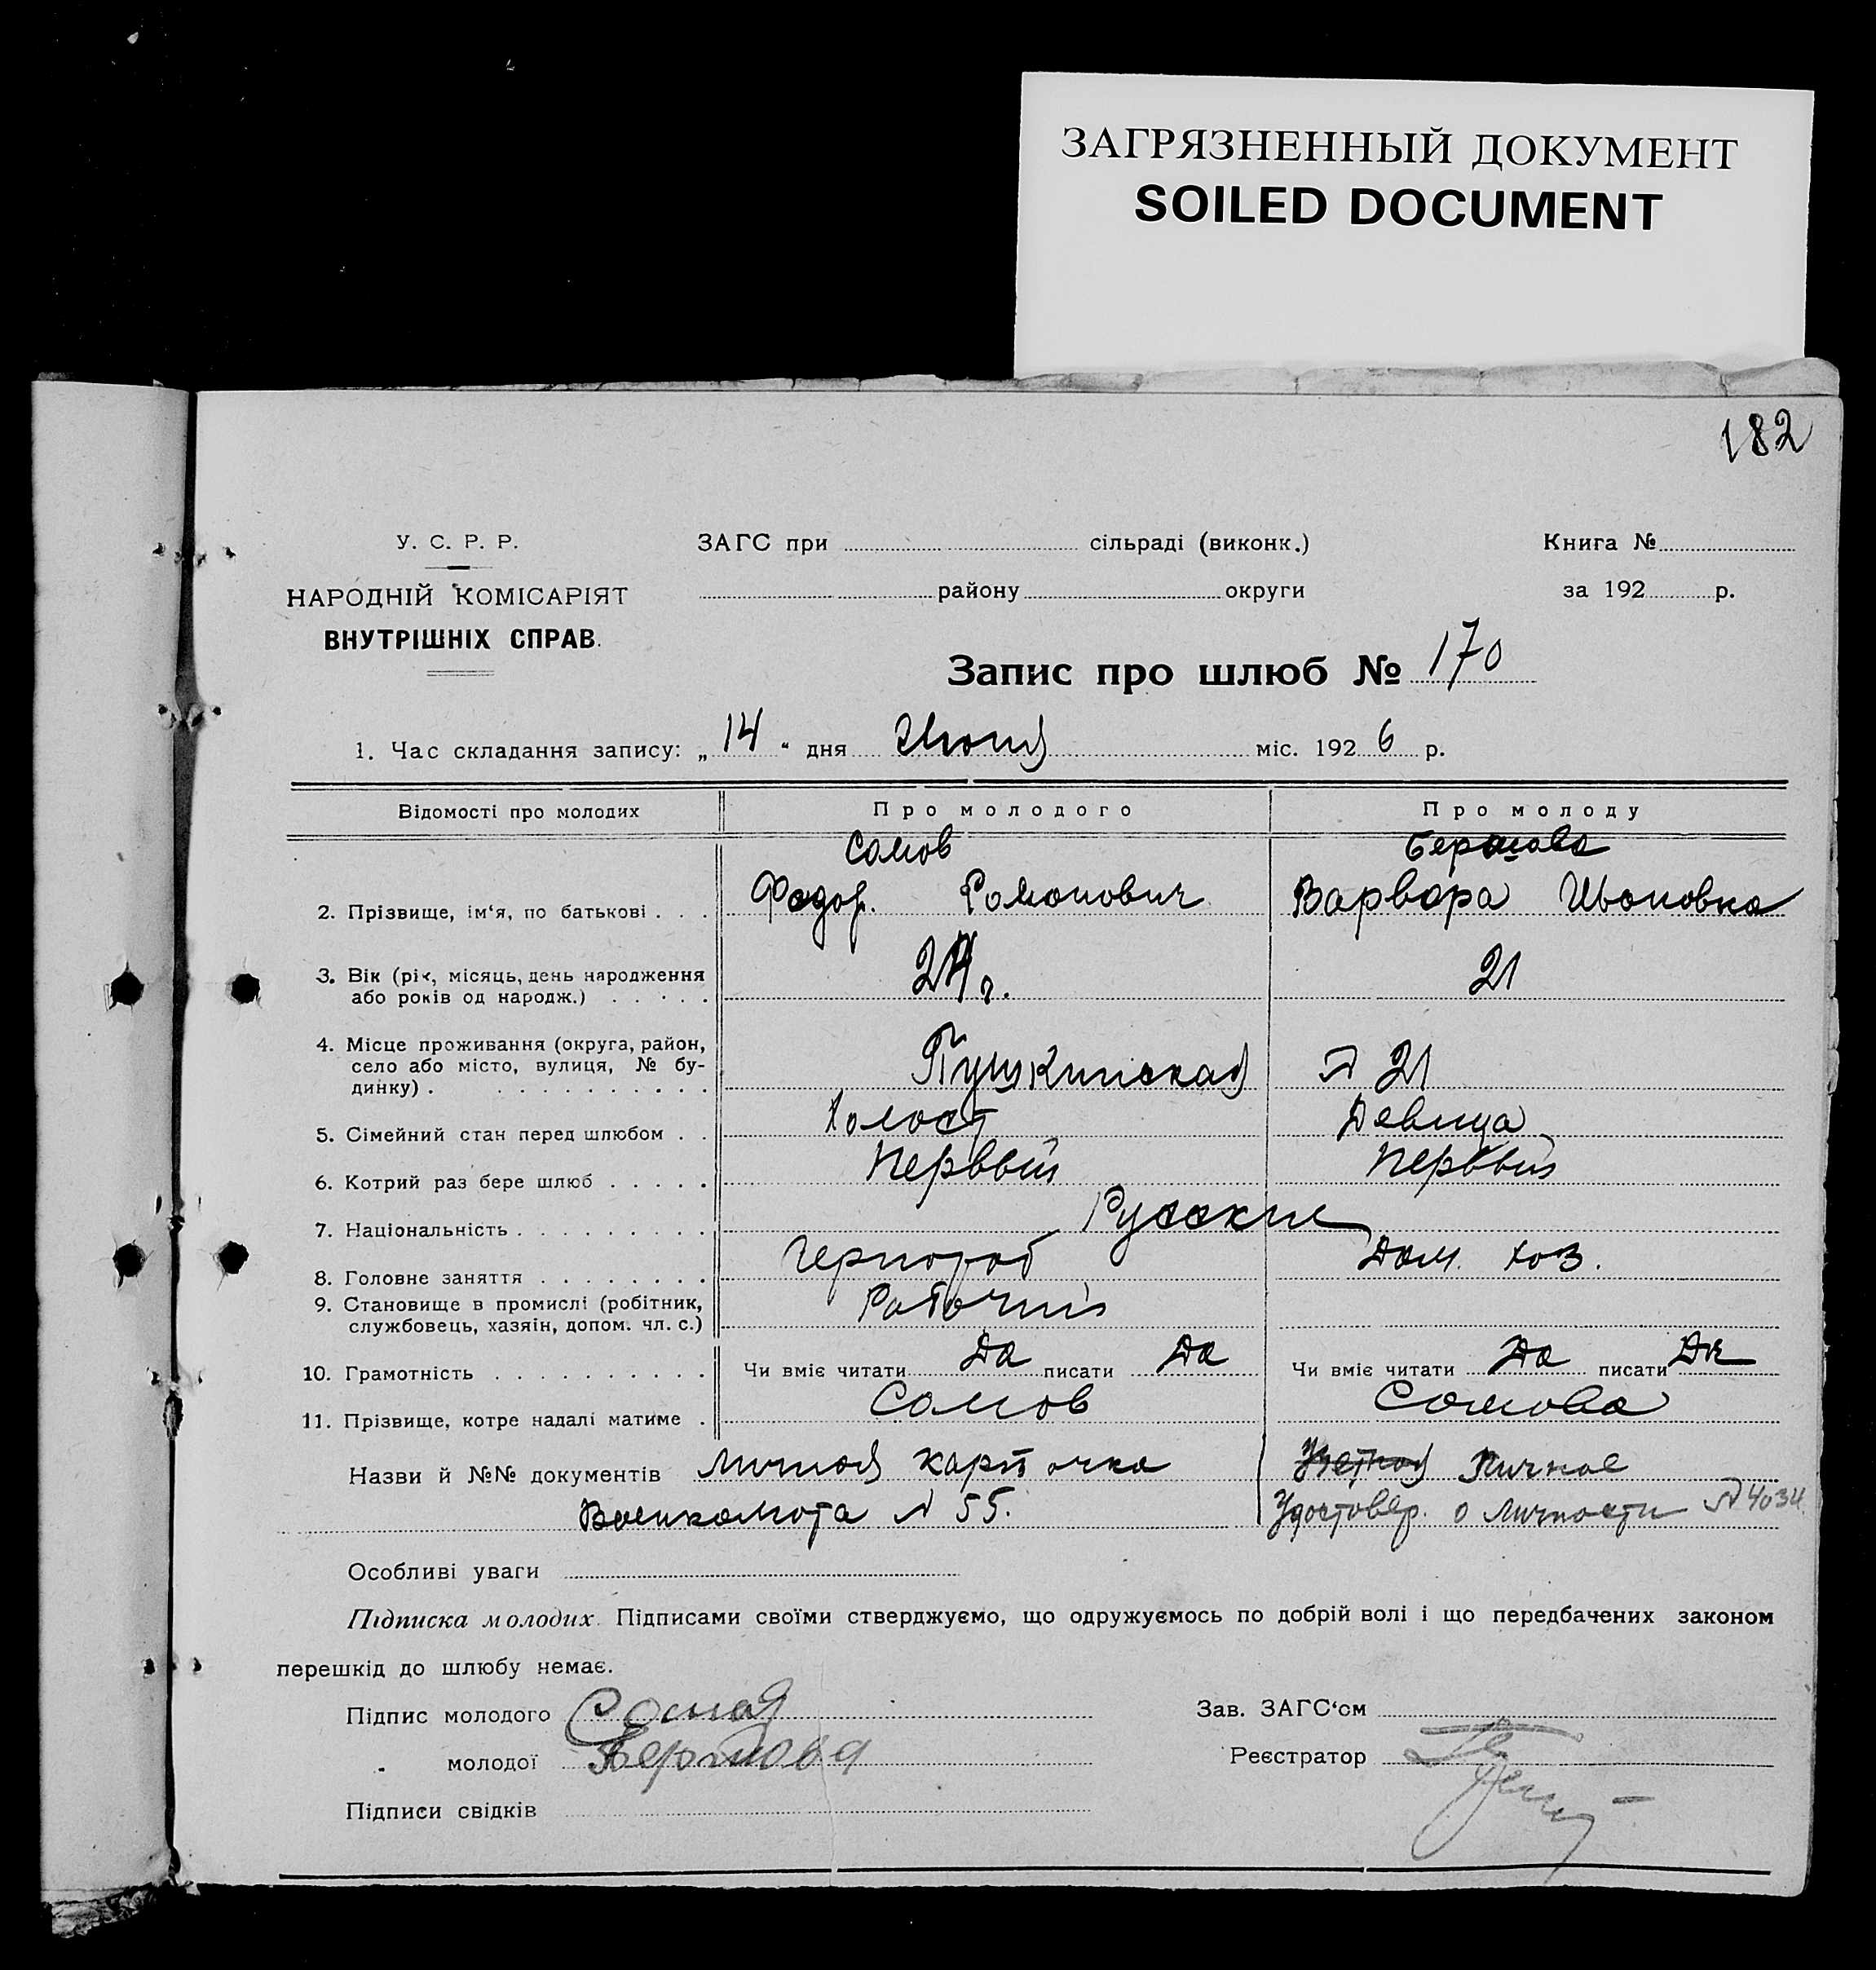 ЗАГРЯЗНЕННЫЙ ДОКУМЕНТ
SOILED DOCUMENT
182
У. С. Р. Р.
НАРОДНІЙ КОМІСАРІЯТ
ВНУТРІШНІХ СПРАВ.
ЗАГС при сільраді (виконк.)
району округи
Книга №
за 192 р.
Запис про шлюб № 170
1. Час складання запису: „ 14 “ дня Июня міс. 192 6 р.
Відомості про молодих Про молодого Про молоду
Сомов
2. Прізвище, ім‘я, по батькові . . . Федор. Романович Варвара Ивановна
3. Вік (рік, місяць, день народження 24 г. 21
або років од народж.) . . . . .
4. Місце проживання (округа, район,
село або місто, вулиця, № бу-
динку) . . . . . . . . . . Пушкинская № 21
5. Сімейний стан перед шлюбом . . Холост Девица
6. Котрий раз бере шлюб . . . . . Первый Первый
7. Національність . . . . . . . . . Русские
8. Головне заняття . . . . . . . . Чернораб Дом. хоз.
9. Становище в промислі (робітник, Рабочий
службовець, хазяїн, допом. чл. с.)
10. Грамотність . . . . . . . . . . Чи вміє читати Да писати Да Чи вміє читати Да писати Да
11. Прізвище, котре надалі матиме . Сомов Сомова
Назви й №№ документів Личная карточка Учетная Личное
Военкомата № 55. Удостовер. о личности № 4034
Особливі уваги
Підписка молодих. Підписами своїми стверджуємо, що одружуємось по добрій волі і що передбачених законом
перешкід до шлюбу немає.
Підпис молодого
Зав. ЗАГС‘ом
молодої
Реєстратор
Підписи свідків